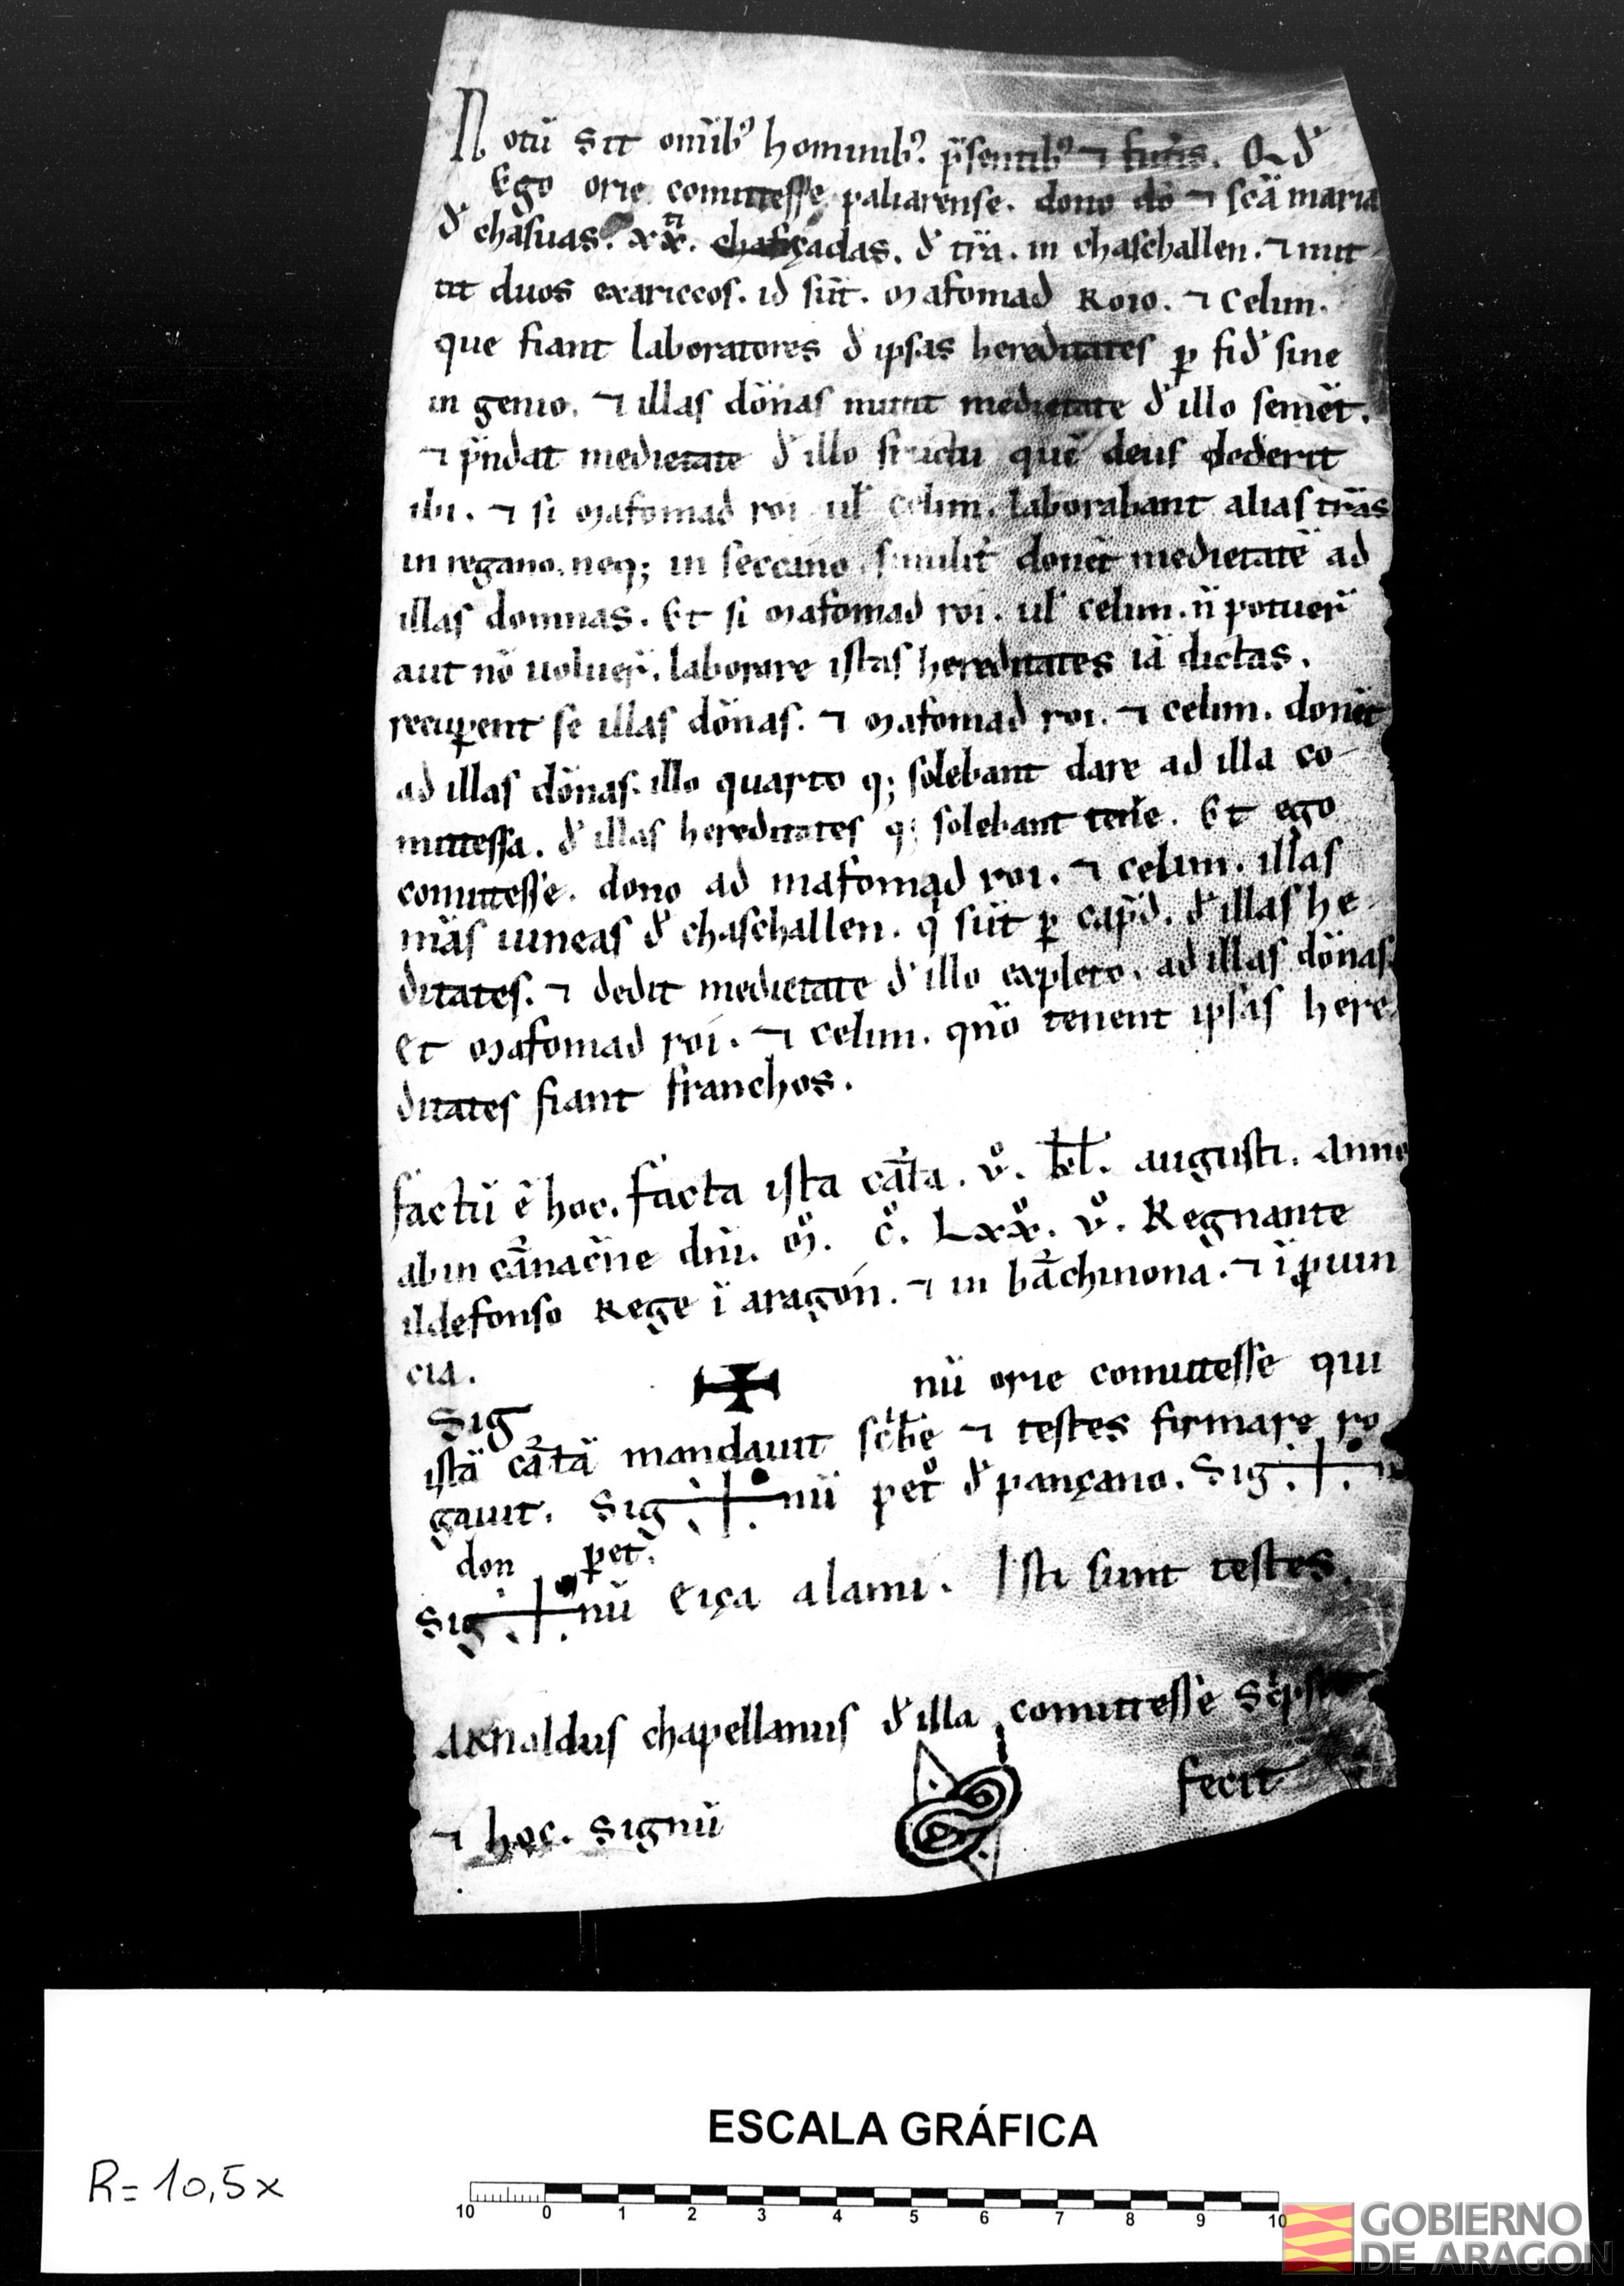 Notũ sit omĩbꝰ hominibꝰ. p̃sentibꝰ ⁊ futuris. Qđ
Ego orie comittesse paliarense. dono dõ ⁊ scã maria
đ chasuas. xxti. chafiçadas. đ trã. in chaschallen. ⁊ mit
tit duos exariccos. id sũt. Mafomad Roio. ⁊ Celim.
que fiant laboratores đ ipsas hereditates ꝑ fiđ sine
in genio. ⁊ illas dõnas mitat medietate đ illo semẽt.
⁊ p̃ndat medietate đ illo fructu quẽ deus dederit
ibi. ⁊ si Mafomad roi ul̃ Celim. laborabant alias trãs
in regano. neq; in seccano. similit̃ donẽt medietatẽ ad
illas domnas. Et si Mafomad roi. ul̃ celim. ñ potuer̃
aut nõ uoluer̃. laborare istas hereditates iã dictas.
recuꝑent se illas dõnas. ⁊ Mafomad roi. ⁊ celim. donẽt
ad illas dõnas. illo quarto q; solebant dare ad illa co
mittessa. đ illas hereditates q; solebant tene. Et ego
comittesse. dono ad mafomad roi. ⁊ celim. illas
mãs uineas đ chaschallen. q̃ sũt ꝑ cap̃đ. đ illas he
ditates. ⁊ dedit medietate đ illo expleto. ad illas dõnas.
et Mafomad roi. ⁊ celim. qñõ tenent ipsas here
ditates fiant franchos.
factũ ẽ hoc. facta ista cãta. vͦ. kl̃. augusti. Anno
ab in cãnacñe dñi. mͦ. cͦ. Lxxͦ. vͦ. Regnante
ildefonso Rege ĩ aragon. ⁊ in bãchinona. ⁊ ĩ ꝓuin
cia.
Sig ✠ nũ orie comittesse qui
istã cãtã mandauit scͥbe ⁊ testes firmare ro
gauit. Sig + nũ petͦ đ pançano. Sig + nũ
don ꝑet.
Sig + nũ Eiça alami. Isti sunt testes.
ARnaldus chapellanus đ illa comittesse
⁊ hoc. signũ fecit
ESCALA GRÁFICA
R=10,5x
10 0 1 2 3 4 5 6 7 8 9 10
GOBIERNO
DE ARAGON